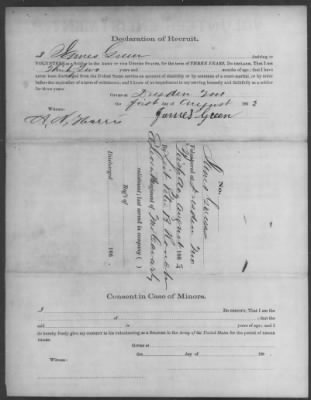 Declaration of Recruit.
I James Green desiring to
VOLUNTEER as a Soldier in the Army of the United States, for the term of THREE YEARS, Do declare, That I am
Thirty Two years and months of age; that I have
never been discharged from the United States service on account of disability or by sentence of a court-martial, or by order
before the expiration of a term of enlistment; and I know of no impediment to my serving honestly and faithfully as a soldier
for three years.
Given at Dresden Mo
the First day August 186 2
Witness:
James Green
No.
James Green
Volunteered at Dresden Mo
First day August 186 2
By Lieut
Regiment of Mo Cavalry
enlistment; last served in company ( )
Reg't of
Discharged 186 .
Consent in Case of Minors.
I Do certify, That I am the
of ; that the
said is years of age; and I
do hereby freely give my consent to his volunteering as a Soldier in the Army of the United States for the period of three
years.
Given at
the day of 186
Witness: